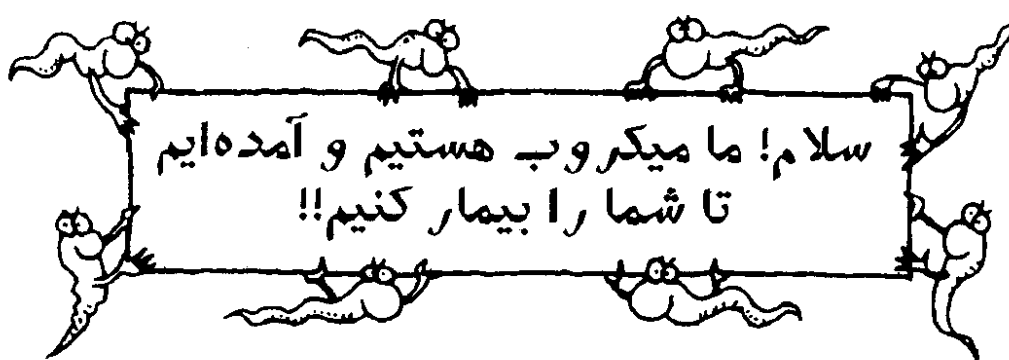 سلام! ما میکروب هستیم و آمده‌ایم
تا شما را بیمار کنیم!!